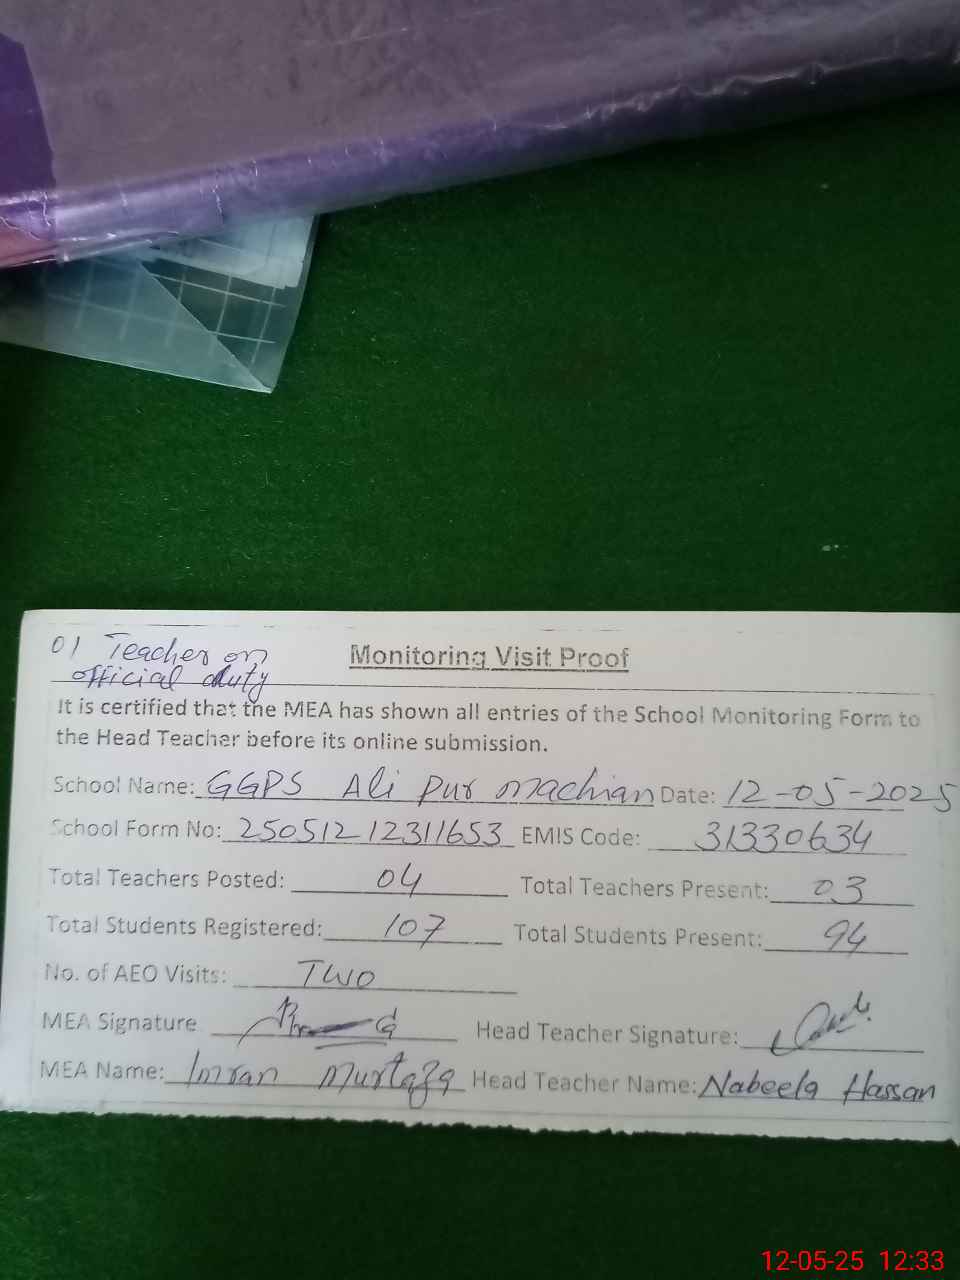 01 Teacher on
official duty
Monitoring Visit Proof
It is certified that the MEA has shown all entries of the School Monitoring Form to
the Head Teacher before its online submission.
School Name: GGPS Ali Pur machian Date: 12-05-2025
School Form No: 25051212311653 EMIS Code: 31330634
Total Teachers Posted: 04 Total Teachers Present: 03
Total Students Registered: 107 Total Students Present: 94
No. of AEO Visits: Two
MEA Signature Head Teacher Signature:
MEA Name: Imran Murtaza Head Teacher Name: Nabeela Hassan
12-05-25 12:33